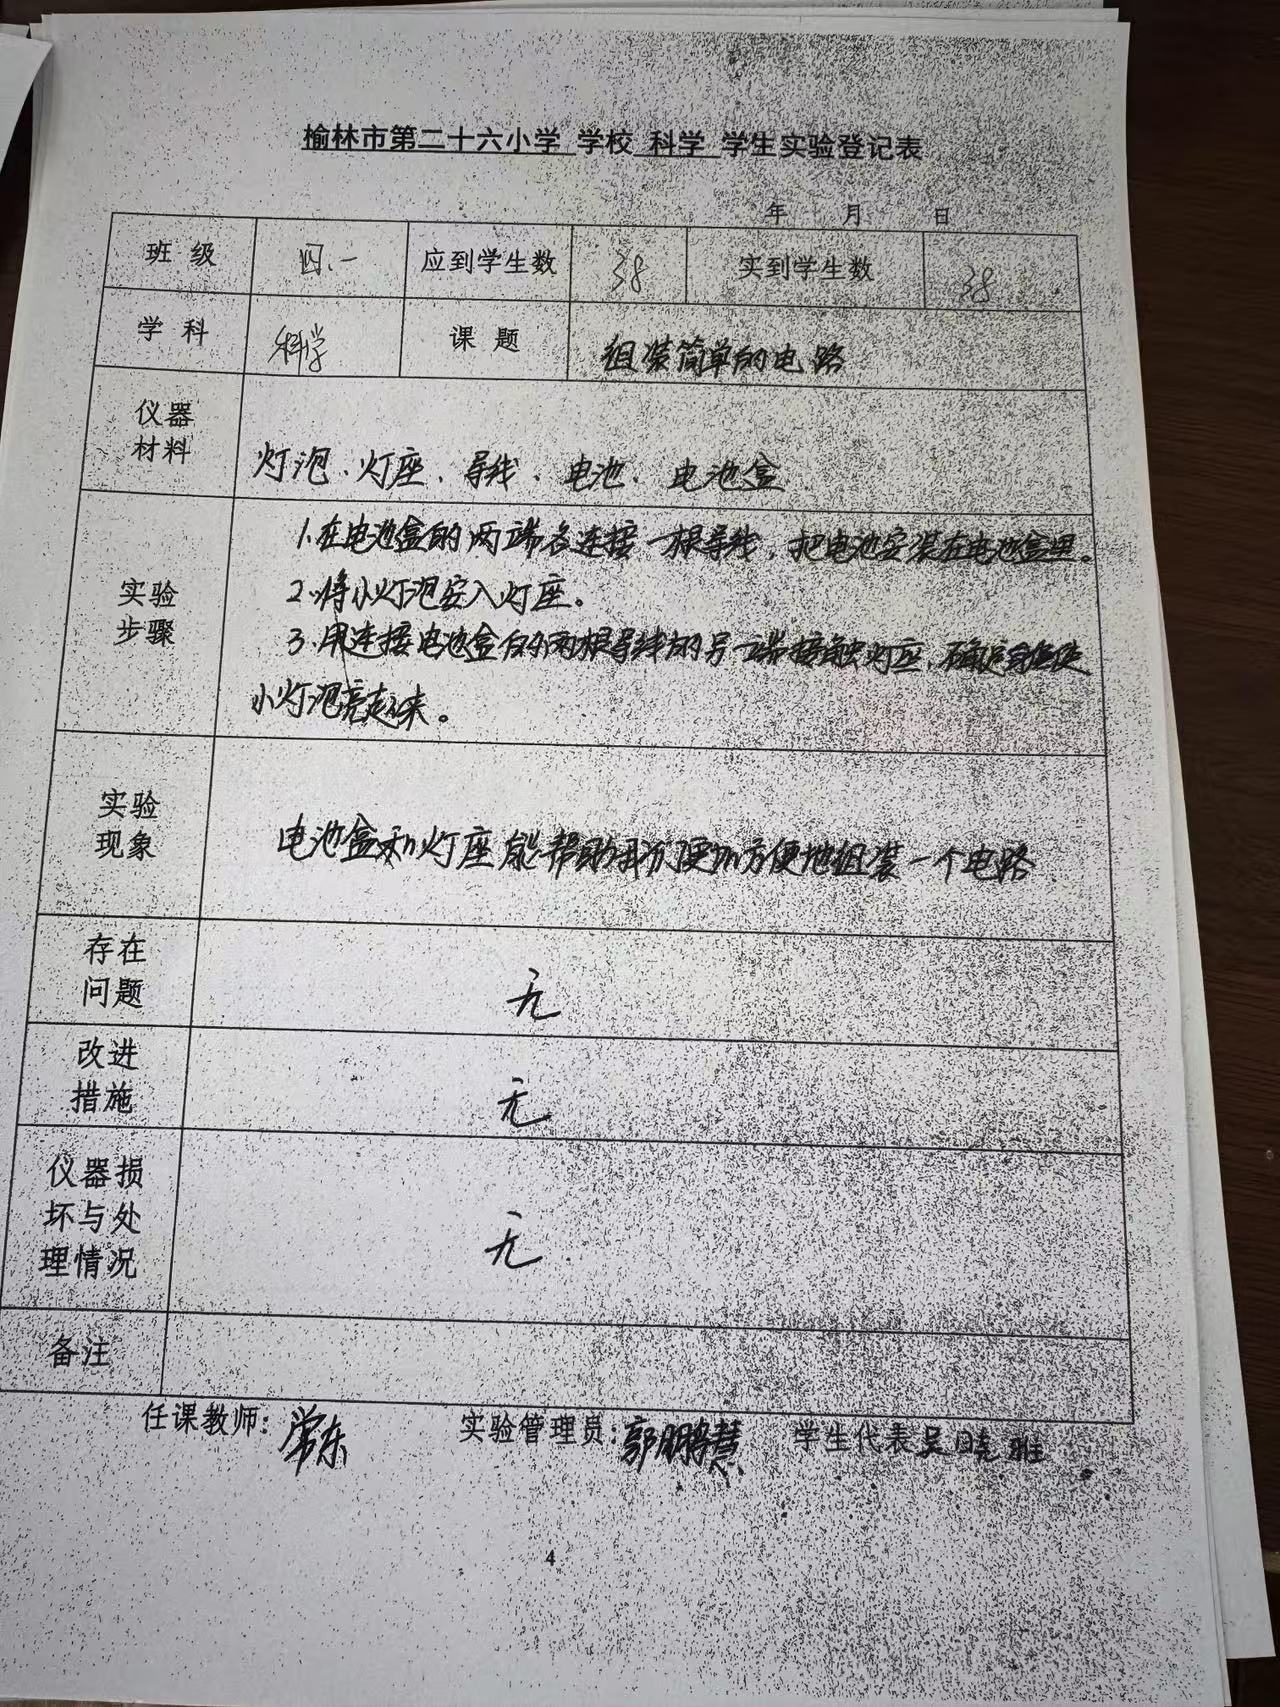 榆林市第二十六小学 学校 科学 学生实验登记表
年 月 日
班 级 四.一 应到学生数 38 实到学生数 38
学 科 科学 课 题 组装简单的电路
仪器
材料
灯泡、灯座、导线、电池、电池盒
实验
步骤
1.在电池盒的两端各连接一根导线，把电池安装在电池盒里。
2.将小灯泡安入灯座。
3.用连接电池盒的两根导线的另一端接触灯座，确定能使
小灯泡亮起来。
实验
现象
电池盒和灯座能帮助我们更加方便地组装一个电路
存在
问题
无
改进
措施
无
仪器损
坏与处
理情况
无
备注
任课教师: 常东 实验管理员: 郭鹏慧 学生代表 吴晓
4